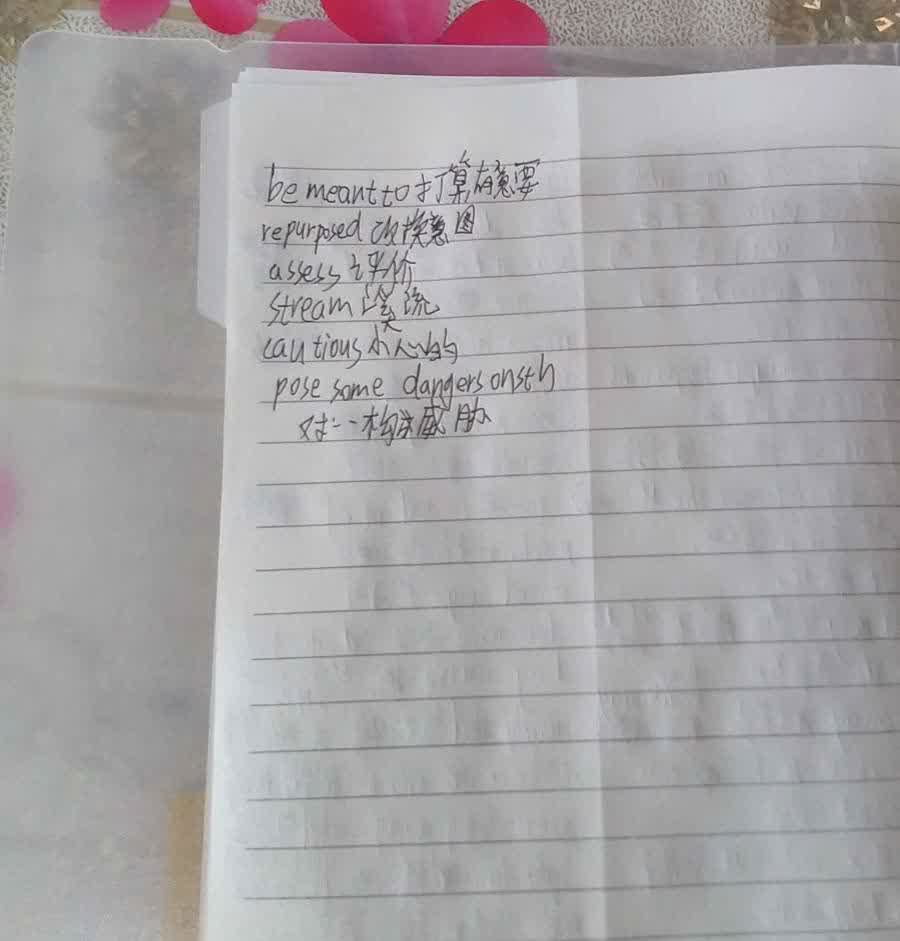 be meant to 打算有意要
repurposed 改换意图
assess 评价
stream 溪流
cautious 小心的
pose some dangers on sth
对…构成威胁